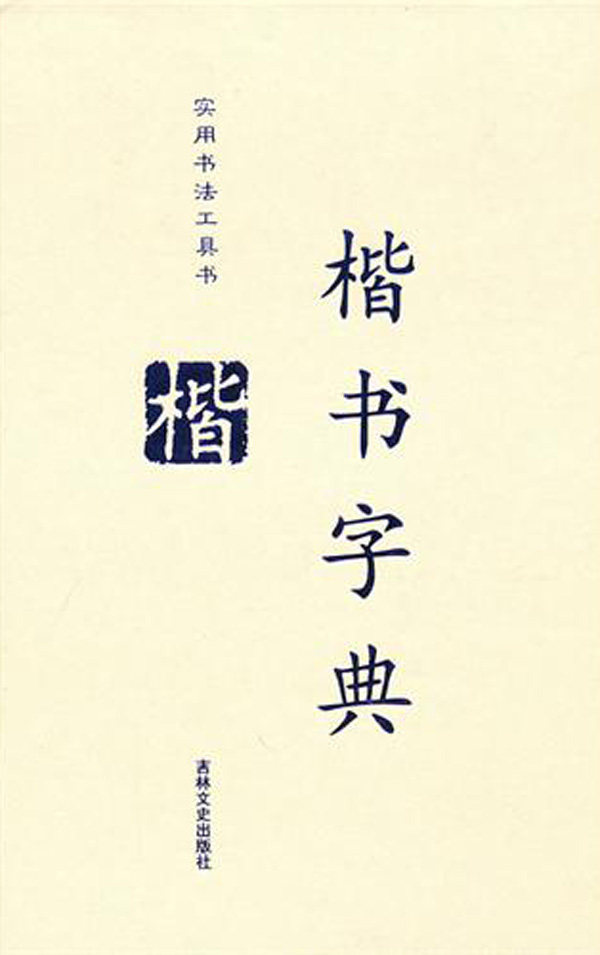 楷书字典
实用书法工具书
楷
吉林文史出版社